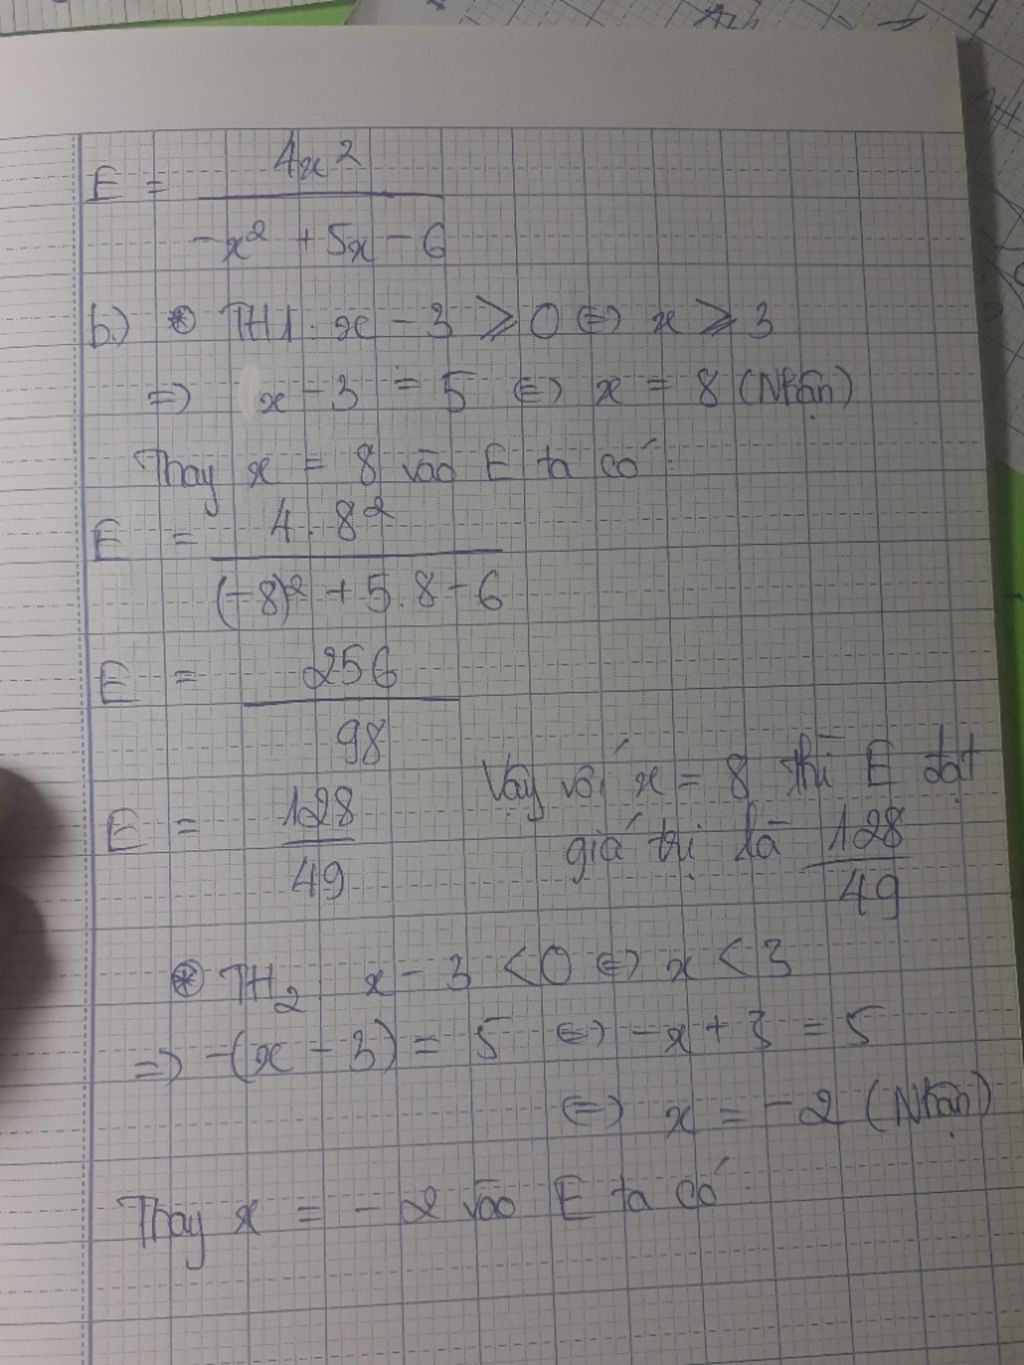 E = 4x²
-x² + 5x - 6
b.) ⊛ TH1. x - 3 ⩾ 0 ⇔ x ⩾ 3
⇒ x - 3 = 5 ⇔ x = 8 (Nhận)
Thay x = 8 vào E ta có:
E = 4.8²
(-8)² + 5.8 - 6
E = 256
98
E = 128
49
Vậy với x = 8 thì E đạt
giá trị là 128
49
⊛ TH₂ x - 3 < 0 ⇔ x < 3
⇒ -(x - 3) = 5 ⇔ -x + 3 = 5
⇔ x = -2 (Nhận)
Thay x = -2 vào E ta có: